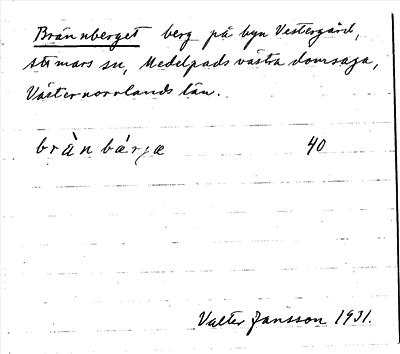 Brännberget berg på byn Vestergård,
Attmars sn, Medelpads västra domsaga,
Västernorrlands län.
brànbárjæ 40
Valter Jansson 1931.